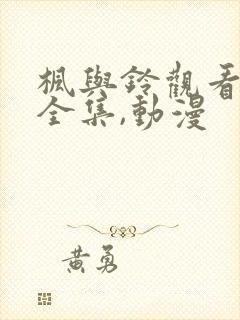 楓與鈴觀看
全集,動漫
黃勇